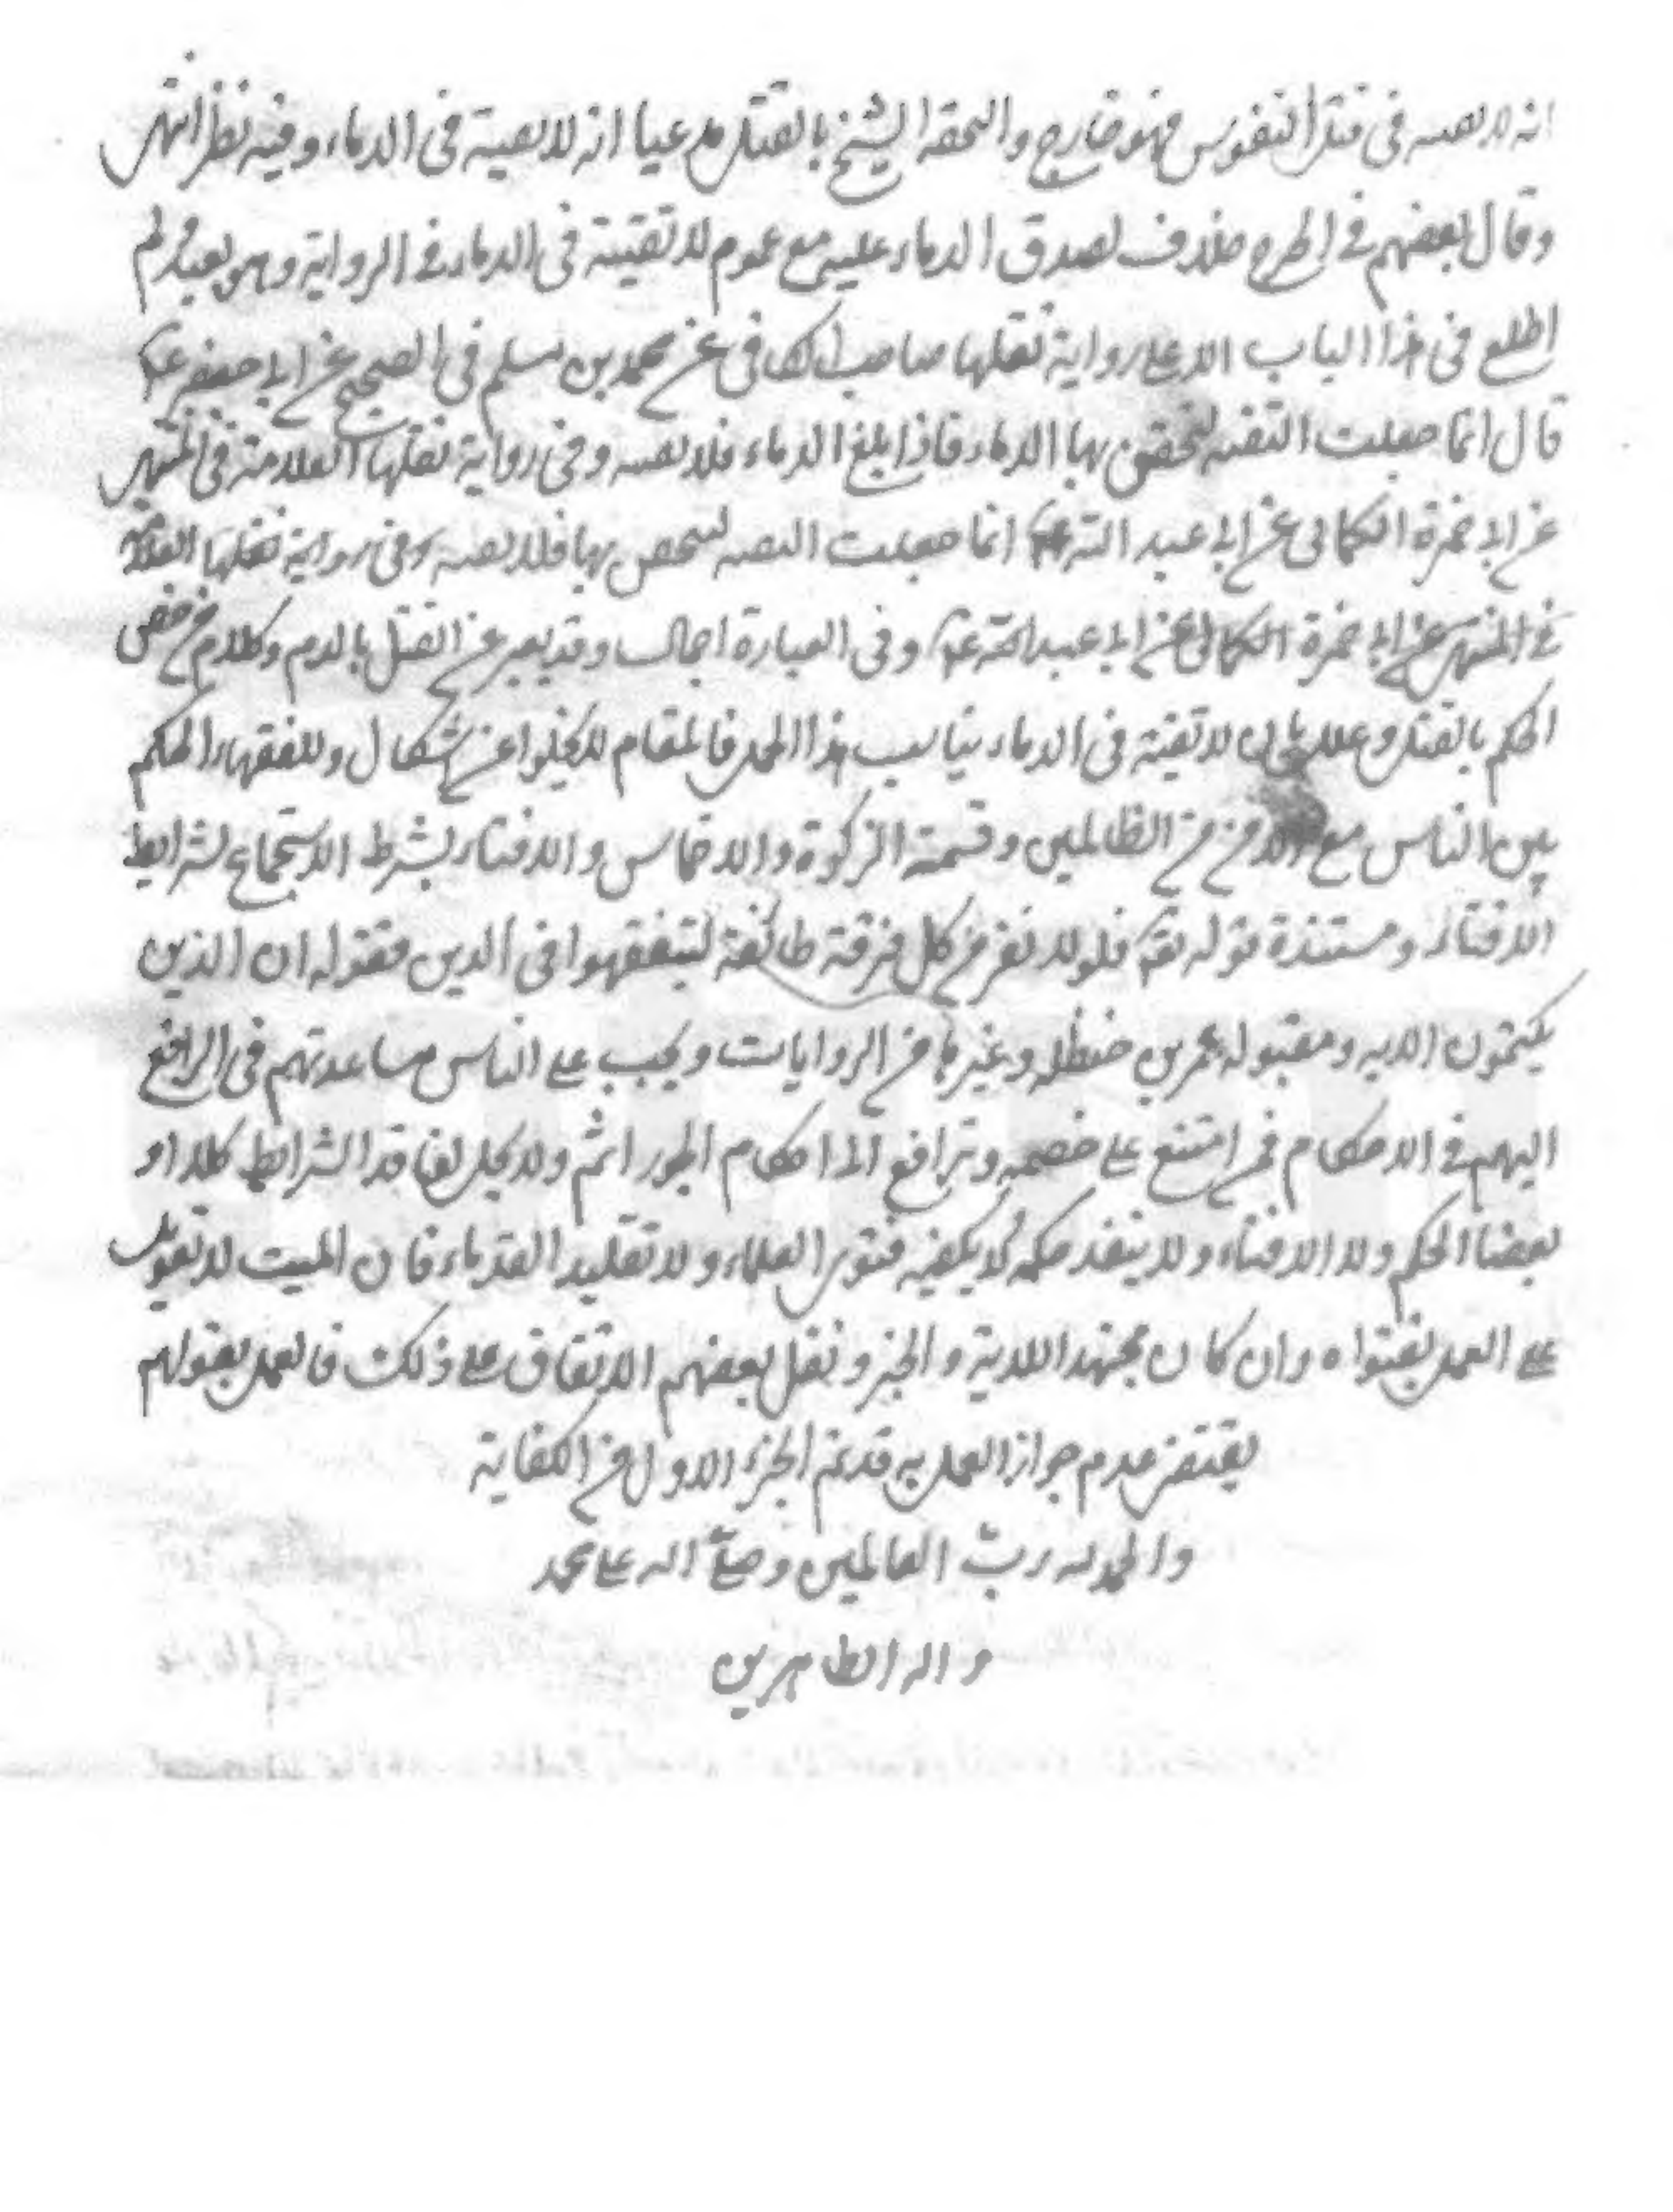 انه لا تقيه فى قتل النفوس فهو خارج والحقه الشيخ بالقتل مدعيا انه لا تقية فى الدماء وفيه نظر انتهى
وقال بعضهم فى الجرح خلاف لصدق الدماء عليه مع عموم لا تقية فى الدماء فى الرواية وهو بعيد ولم
اطلع فى هذا الباب الا على رواية نقلها صاحب الكافى عن محمد بن مسلم فى الصحيح عن ابى جعفر ع
قال انما جعلت التقيه لتحقن بها الدماء فاذا بلغ الدماء فلا تقيه وفى رواية نقلها العلامة فى المنتهى
عن ابى حمزة الثمالى عن ابى عبد الله ع انما جعلت التقيه بها فلا تقيه وفى رواية نقلها العلامة
فى المنتهى عن ابى حمزة الثمالى عن ابى عبد الله ع وفى العبارة اجمال وقد يعبر عن القتل بالدم وكلام من خص
الحكم بالقتل وعلله بان لا تقية فى الدماء يناسب هذا المحل فالمقام لا يخلوا عن اشكال وللفقهاء الحكم
بين الناس مع الامن من الظالمين وقسمة الزكوة والاخماس والافتاء بشرط الاستجماع لشرايط
الافتاء ومستنده قوله تع فلولا نفر من كل فرقة طائفة لتيفقهوا فى الدين فقوله ان الذين
يكتمون الايه ومقبوله عمر بن حنظله وغيرها من الروايات ويجب على الناس مساعدتهم فى الرافع
اليهم فى الاحكام فمن امتنع على خصمه وترافع الى احكام الجور اثم ولا يحل لفاقد الشرايط كلا او
بعضا الحكم ولا الافتاء ولا ينفذ حكمه ولا يكفيه فتوى العلماء ولا تقليد القدماء فان الميت لا تعويل
على العمل بفتواه وان كان مجتهدا للاية والخبر ونقل بعضهم الاتفاق على ذلك فالعمل بقولهم
يقتضى عدم جواز العمل به قد تم الجزء الاول من الكفاية
والحمد لله ربّ العالمين وصلّى الله على محمد
واله الطاهرين